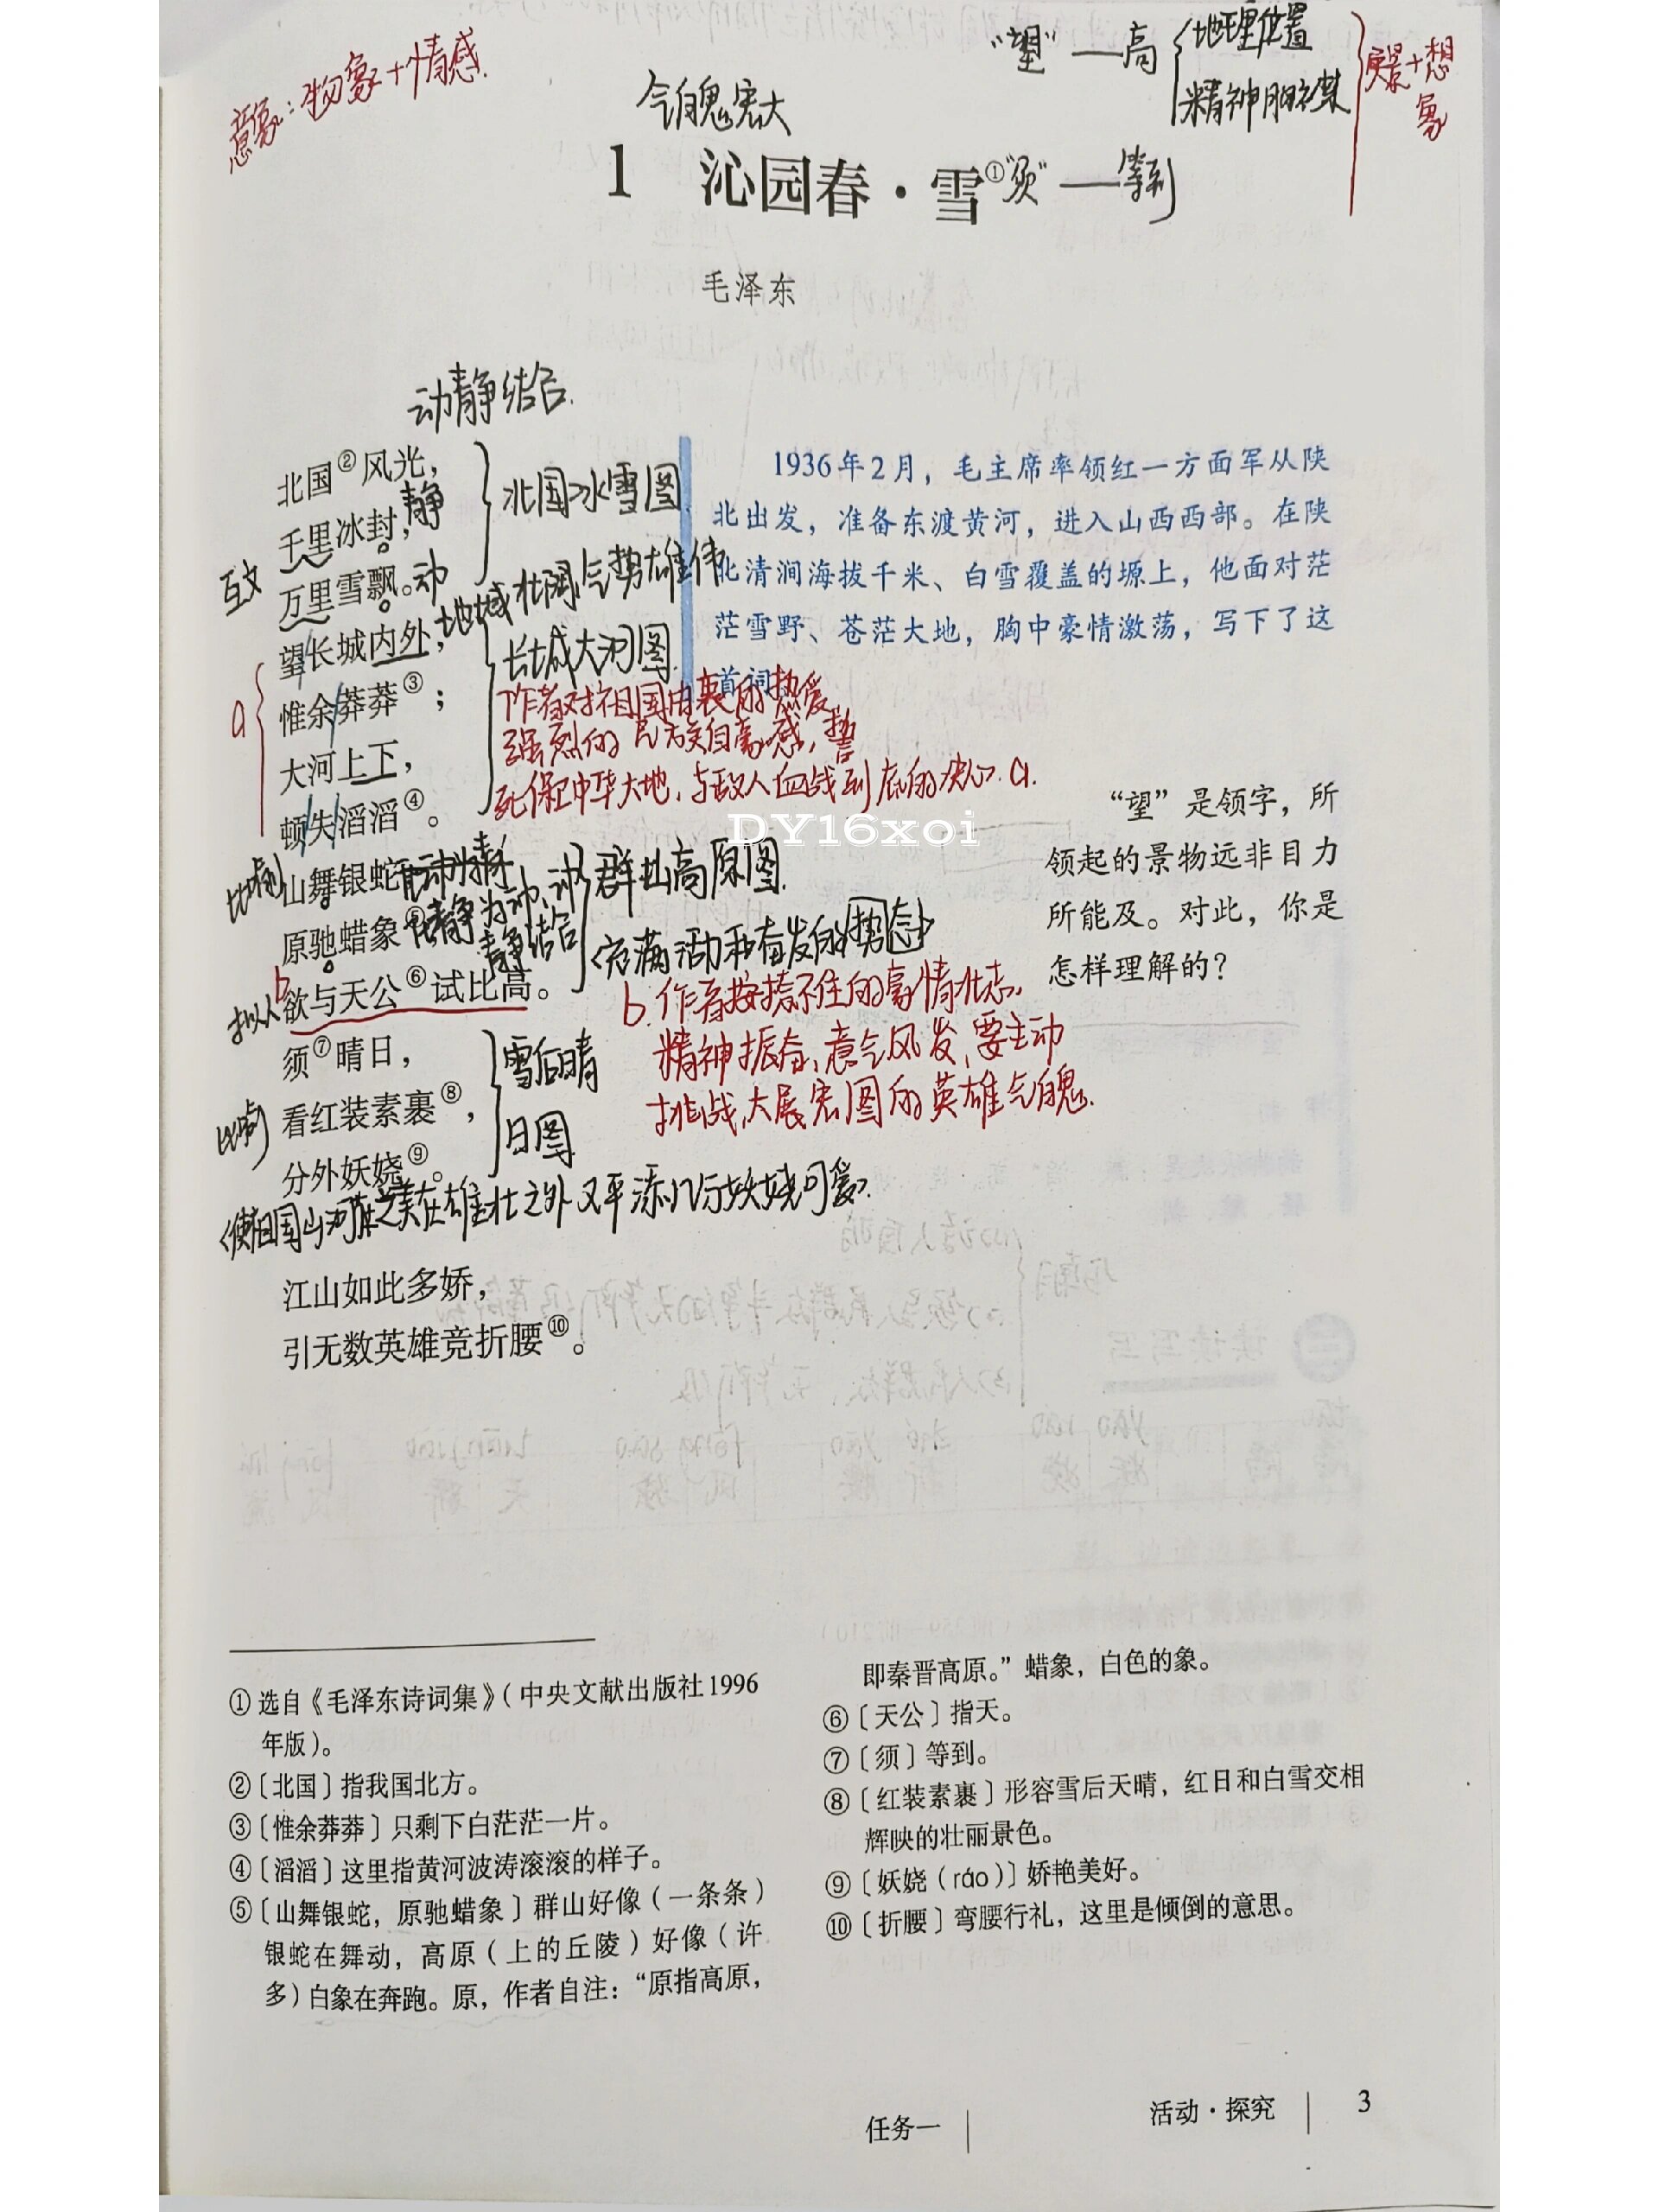 意象：物象+情感.
"望"—高
地理位置
精神胸襟
实景+想象
气魄宏大
1 沁园春·雪①
"须"—等到
毛泽东
动静结合.
北国②风光，
千里冰封，静
万里雪飘。动
互文
望长城内外，
惟余莽莽③；
大河上下，
顿失滔滔④。
a
山舞银蛇，
原驰蜡象⑤，
欲与天公⑥试比高。
比喻
化静为动、动静结合
b
拟人
须⑦晴日，
看红装素裹⑧，
分外妖娆⑨。
比喻
北国冰雪图
地域壮阔,气势雄伟
长城大河图.
作者对祖国由衷的热爱,
强烈的民族自豪感,誓
死保卫中华大地,与敌人血战到底的决心. a.
群山高原图.
<充满活力和奋发的势态>
b.作者按捺不住的豪情壮志,
精神振奋,意气风发,要主动
挑战,大展宏图的英雄气魄.
雪后晴
日图
<使祖国山河之美在雄壮之外又平添几分妖娆可爱>.
江山如此多娇，
引无数英雄竞折腰⑩。
1936年2月，毛主席率领红一方面军从陕
北出发，准备东渡黄河，进入山西西部。在陕
北清涧海拔千米、白雪覆盖的塬上，他面对茫
茫雪野、苍茫大地，胸中豪情激荡，写下了这
首词。
DY16xoi
“望”是领字，所
领起的景物远非目力
所能及。对此，你是
怎样理解的？
①选自《毛泽东诗词集》（中央文献出版社1996
年版）。
②〔北国〕指我国北方。
③〔惟余莽莽〕只剩下白茫茫一片。
④〔滔滔〕这里指黄河波涛滚滚的样子。
⑤〔山舞银蛇，原驰蜡象〕群山好像（一条条）
银蛇在舞动，高原（上的丘陵）好像（许
多）白象在奔跑。原，作者自注：“原指高原，
即秦晋高原。”蜡象，白色的象。
⑥〔天公〕指天。
⑦〔须〕等到。
⑧〔红装素裹〕形容雪后天晴，红日和白雪交相
辉映的壮丽景色。
⑨〔妖娆（ráo）〕娇艳美好。
⑩〔折腰〕弯腰行礼，这里是倾倒的意思。
任务一
活动·探究
3